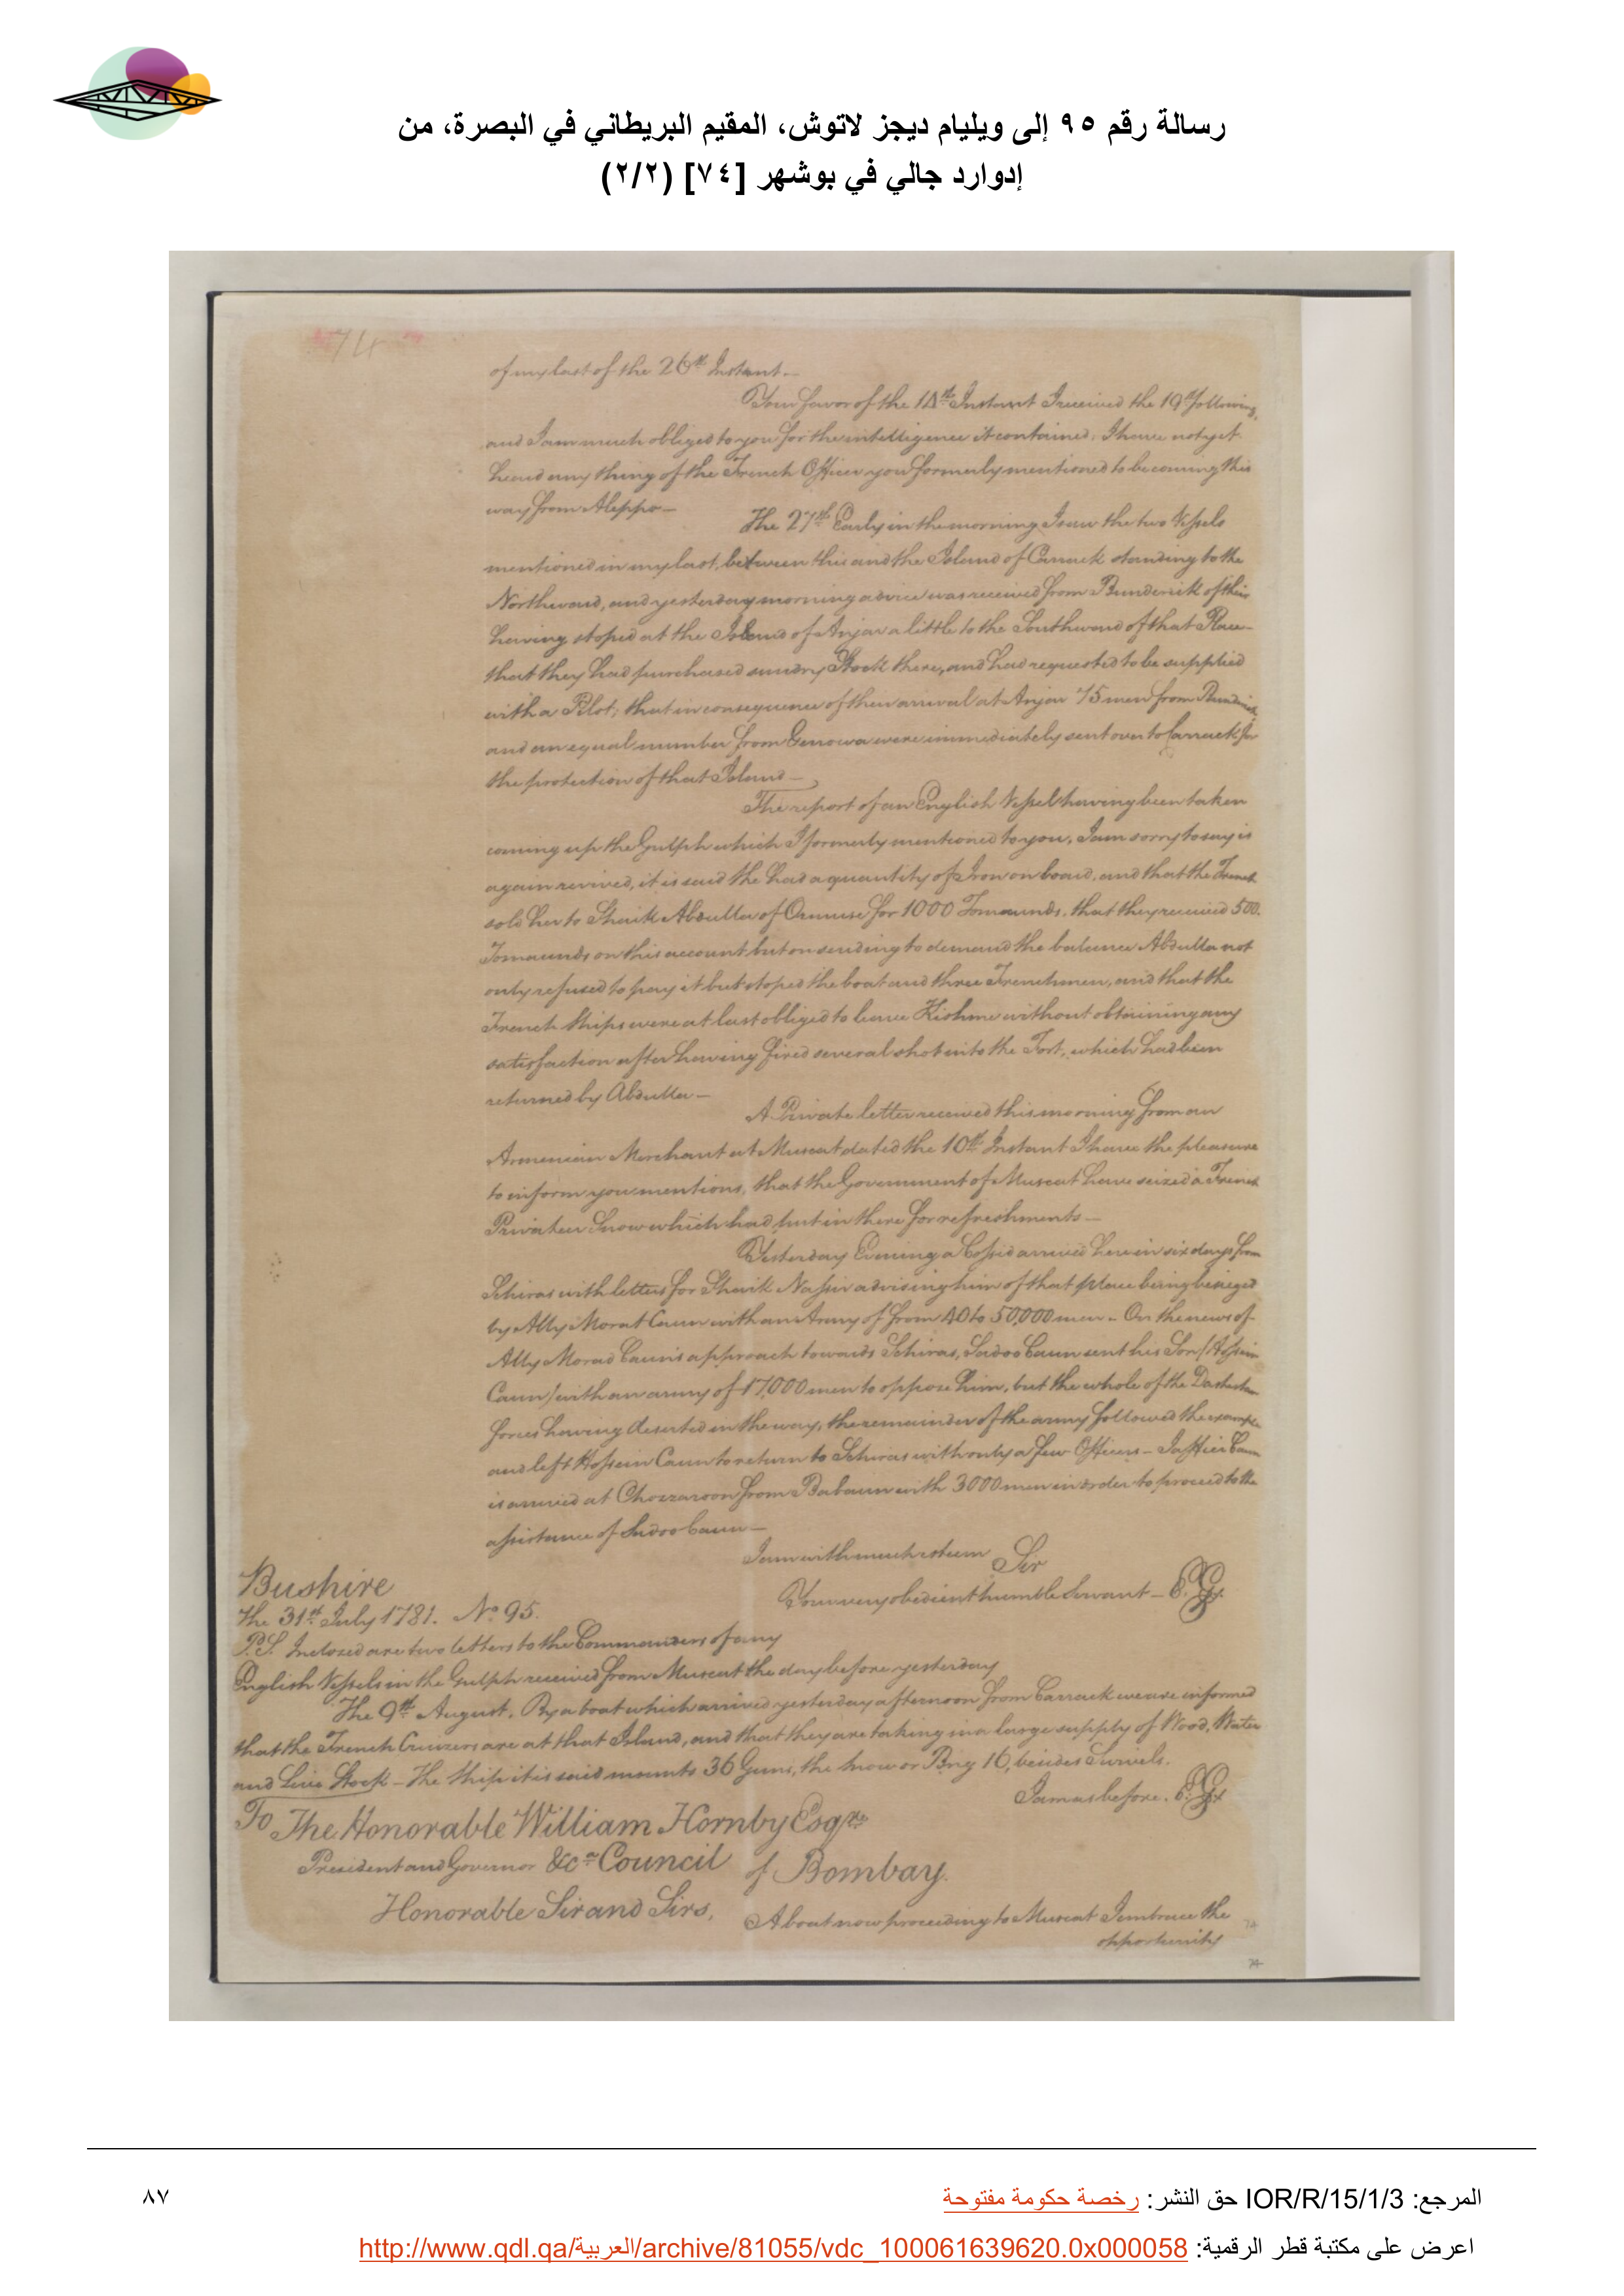 رسالة رقم ٩٥ إلى ويليام ديجز لاتوش، المقيم البريطاني في البصرة، من
إدوارد جالي في بوشهر [٧٤] (٢/٢)
74
of my last of the 26th Instant.—
Your favor of the 14th Instant I received the 19th following,
and I am much obliged to you for the intelligence it contained; I have not yet
heard any thing of the French Officer you formerly mentioned to be coming this
way from Aleppo—
The 27th Early in the morning I saw the two Vessels
mentioned in my last, between this and the Island of Carrack standing to the
Northward, and yesterday morning advice was received from Bunderick of their
having stoped at the Island of Anjar a little to the Southward of that Place—
that they had purchased sundry Stock there, and had requested to be supplied
with a Pilot; that in consequence of their arrival at Anjar 75 men from Bunderick
and an equal number from Genowa were immediately sent over to Carrack for
the protection of that Island—
The report of an English Vessel having been taken
coming up the Gulph which I formerly mentioned to you, I am sorry to say is
again revived, it is said she had a quantity of Iron on board, and that the French
sold her to Shaik Abdulla of Ormuse for 1000 Tomaunds, that they received 500.
Tomaunds on this account but on sending to demand the balance Abdulla not
only refused to pay it but stoped the boat and three Frenchmen, and that the
French Ships were at last obliged to leave Kishme without obtaining any
satisfaction after having fired several shot into the Fort, which had been
returned by Abdulla—
A Private letter received this morning from an
Armenian Merchant at Muscat dated the 10th Instant I have the pleasure
to inform you mentions, that the Government of Muscat have seized a French
Privateer Snow which had put in there for refreshments—
Yesterday Evening a Cossid arrived here in six days from
Schiras with letters for Shaik Nassir advising him of that place being besieged
by Ally Morat Caun with an Army of from 40 to 50,000 men. On the news of
Ally Morad Caun's approach towards Schiras, Sadoo Caun sent his Son (Hossein
Caun) with an army of 17,000 men to oppose him, but the whole of the Dashestan
forces having deserted in the way, the remainder of the army followed the example
and left Hossein Caun to return to Schiras with only a few Officers— Jaffier Caun
is arrived at Chozzaroon from Babaun with 3000 men in order to proceed to the
assistance of Sadoo Caun—
I am with much esteem Sir
Your very obedient humble Servant— E. G.
Bushire
The 31st July 1781. No 95.
P.S. Inclosed are two letters to the Commanders of any
English Vessels in the Gulph received from Muscat the day before yesterday
The 9th August. By a boat which arrived yesterday afternoon from Carrack we are informed
that the French Cruizers are at that Island, and that they are taking in a large supply of Wood, Water
and Live Stock— The Ship it is said mounts 36 Guns, the Snow or Brig 16, besides Swivels.
I am as before. E. G.
To The Honorable William Hornby Esqre
President and Governor &ca Council of Bombay.
Honorable Sir and Sirs,
A boat now proceeding to Muscat I embrace the
opportunity
74
المرجع: IOR/R/15/1/3 حق النشر: رخصة حكومة مفتوحة
٨٧
اعرض على مكتبة قطر الرقمية: http://www.qdl.qa/العربية/archive/81055/vdc_100061639620.0x000058